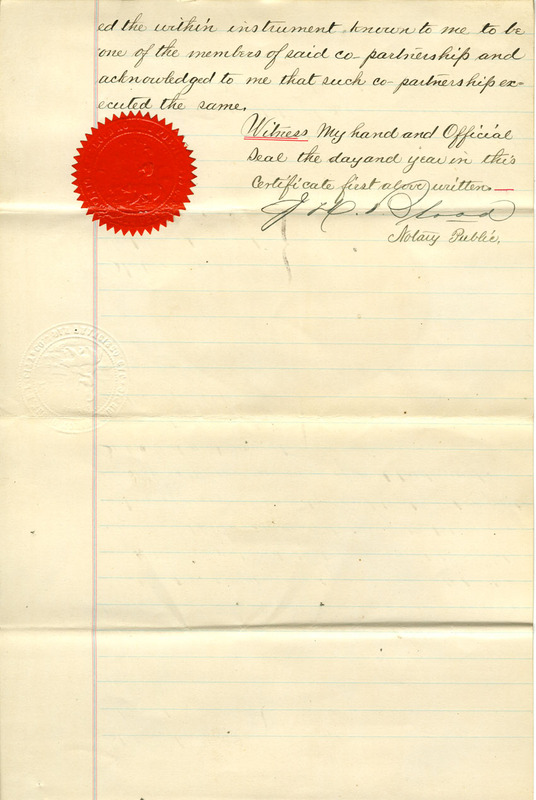 ed the within instrument, known to me to be
one of the members of said co-partnership and
acknowledged to me that such co-partnership ex=
ecuted the same.
Witness My hand and Official
Seal the day and year in this
Certificate first above written—
J. H. Blood
Notary Public.